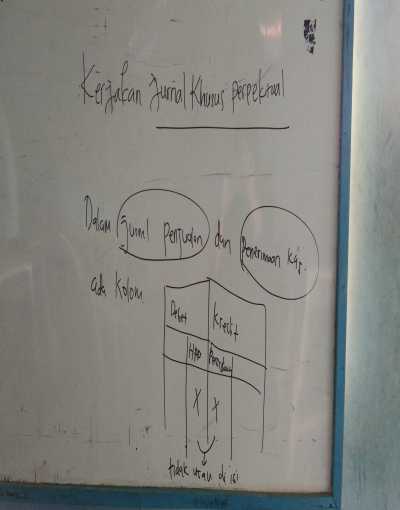 Kerjakan Jurnal Khusus perpektual
Dalam Jurnal penjualan dan penerimaan kas.
ada kolom
Debet Kredit
HPP Persediaan
X X
tidak usah di isi